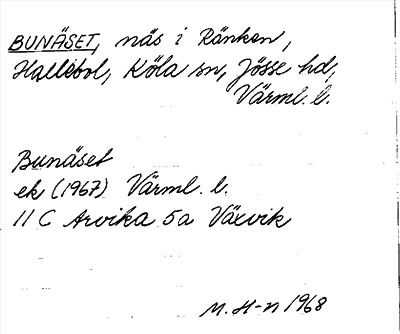 BUNÄSET, näs i Ränken,
Hallebol, Köla sn, Jösse hd,
Värml. l.
Bunäset
ek (1967) Värml. l.
11 C Arvika 5a Växvik
M. H-n 1968